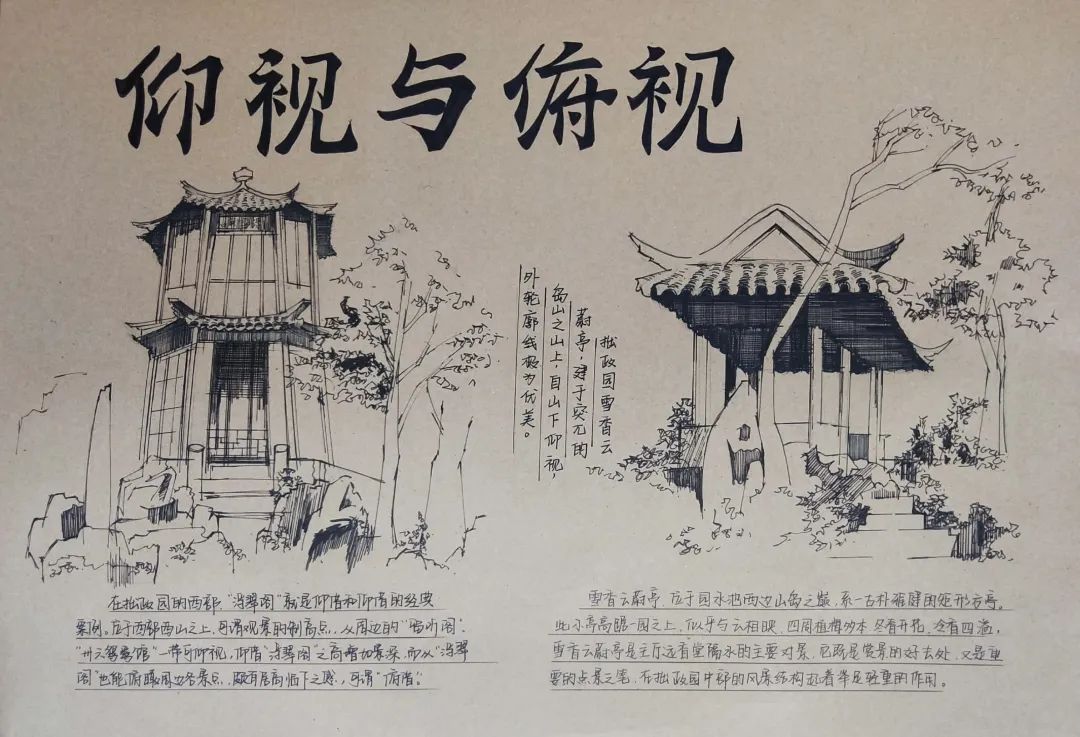 仰视与俯视
拙政园雪香云
蔚亭，建于突兀的
岛山之山上，自山下仰视，
外轮廓线极为优美。
在拙政园的西部，“浮翠阁”就是仰借和仰借的经典
案例。位于西部西山之上，可谓观景的制高点，从周边的“留听阁”、
“卅六鸳鸯馆”一带可仰视，仰借“浮翠阁”之高增加景深，而从“浮翠
阁”也能俯瞰周边各景点，颇有居高临下之感，可谓“俯借”。
雪香云蔚亭，位于园水池西边山岛之巅，系一古朴雅健的矩形方亭。
此小亭高踞一园之上，似乎与云相映，四周植梅数本，冬春开花，冷香四溢，
雪香云蔚亭是主厅远香堂隔水的主要对景，它既是赏景的好去处，又是重
要的点景之笔，在拙政园中部的风景结构起着举足轻重的作用。